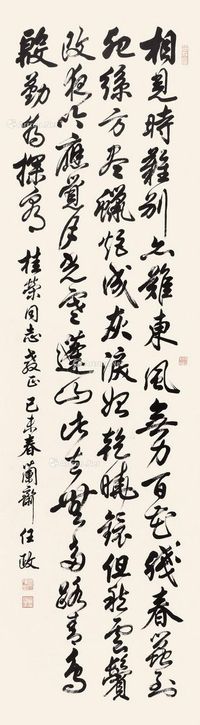 相見時難別亦難東風無力百花殘春蠶到
死絲方盡蠟炬成灰淚始乾曉鏡但愁雲鬢
改夜吟應覺月光寒蓬山此去無多路青鳥
殷勤為探看
桂榮同志教正 己未春蘭齋任政